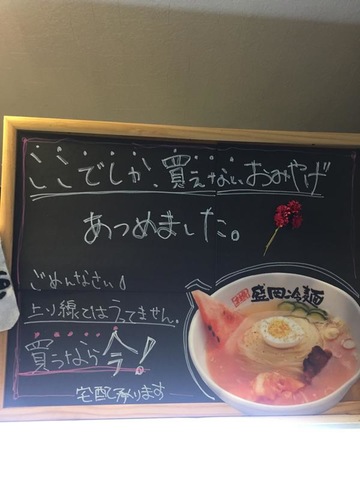 ここでしか、買えないおみやげ
あつめました。
ごめんなさい!
上り線ではうてません。
買うなら今!
宅配承ります
盛岡冷麺